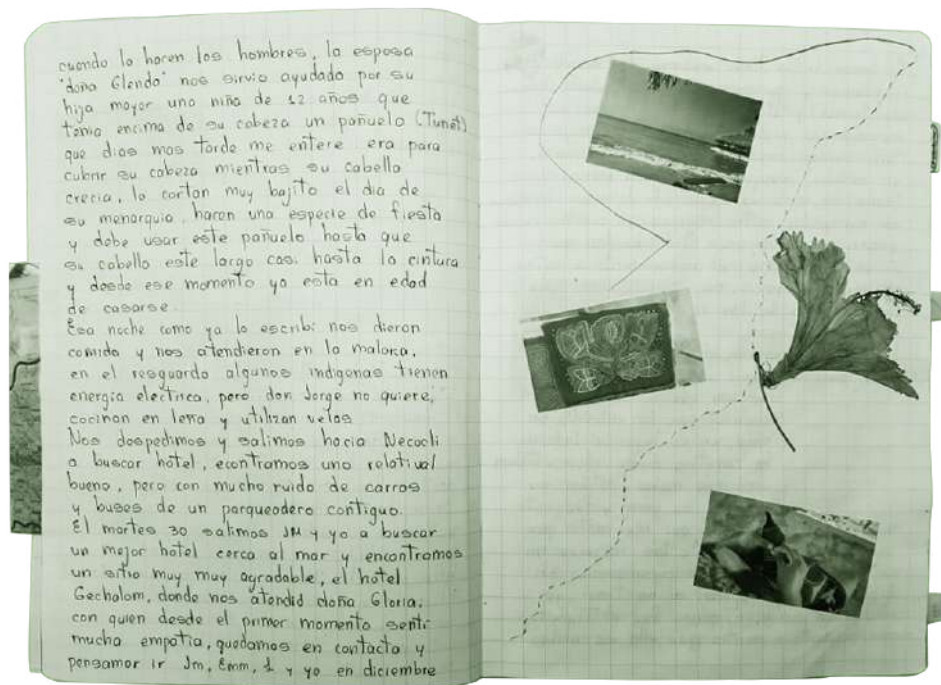 cuando lo hacen los hombres, la esposa
"doña Glenda" nos sirvio ayudada por su
hija mayor una niña de 12 años que
tenia encima de su cabeza un pañuelo (Tunet)
que dias mas tarde me entere era para
cubrir su cabeza mientras su cabello
crecia, lo cortan muy bajito el dia de
su menarquia, hacen una especie de fiesta
y debe usar este pañuelo hasta que
su cabello este largo casi hasta la cintura
y desde ese momento ya esta en edad
de casarse.
Esa noche como ya lo escribi nos dieron
comida y nos atendieron en la maloka,
en el resguardo algunos indigenas tienen
energia electrica, pero don Jorge no quiere,
cocinan en leña y utilizan velas
Nos despedimos y salimos hacia Necocli
a buscar hotel, econtramos uno relatival
bueno, pero con mucho ruido de carros
y buses de un parqueadero contiguo.
El martes 30 salimos JM y yo a buscar
un mejor hotel cerca al mar y encontramos
un sitio muy muy agradable, el hotel
Gechalom, donde nos atendió doña Gloria,
con quien desde el primer momento senti
mucha empatia, quedamos en contacto y
pensamor ir Jm, Emm, y yo en diciembre